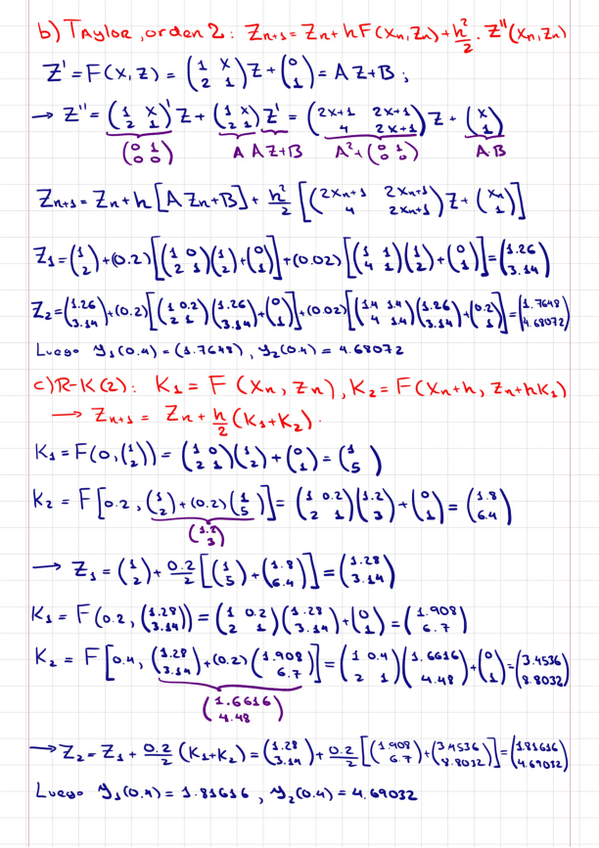 b) Taylor, orden 2: Zn+1 = Zn + hF(Xn, Zn) + h²/2 · Z''(Xn, Zn)
Z' = F(x, z) = (1 x; 2 1) Z + (0; 1) = A Z + B ;
→ Z'' = (1 x; 2 1)' Z + (1 x; 2 1) Z' = (2x+1 2x+1; 4 2x+1) Z + (x; 1)
(0 1; 0 0) A AZ+B A² + (0 1; 0 0) AB
Zn+1 = Zn + h [A Zn + B] + h²/2 [(2xn+1 2xn+1; 4 2xn+1) Z + (xn; 1)]
Z1 = (1; 2) + (0.2) [(1 0; 2 1)(1; 2) + (0; 1)] + (0.02) [(1 1; 4 1)(1; 2) + (0; 1)] = (1.26; 3.14)
Z2 = (1.26; 3.14) + (0.2) [(1 0.2; 2 1)(1.26; 3.14) + (0; 1)] + (0.02) [(1.4 1.4; 4 1.4)(1.26; 3.14) + (0.2; 1)] = (1.7648; 4.68072)
Luego y1(0.4) = (1.7648), y2(0.4) = 4.68072
c) R-K(2): K1 = F (Xn, Zn), K2 = F(Xn+h, Zn+hK1)
→ Zn+1 = Zn + h/2 (K1+K2).
K1 = F(0, (1; 2)) = (1 0; 2 1)(1; 2) + (0; 1) = (1; 5)
K2 = F[0.2, (1; 2) + (0.2)(1; 5)] = (1 0.2; 2 1)(1.2; 3) + (0; 1) = (1.8; 6.4)
(1.2; 3)
→ Z1 = (1; 2) + 0.2/2 [(1; 5) + (1.8; 6.4)] = (1.28; 3.14)
K1 = F(0.2, (1.28; 3.14)) = (1 0.2; 2 1)(1.28; 3.14) + (0; 1) = (1.908; 6.7)
K2 = F[0.4, (1.28; 3.14) + (0.2)(1.908; 6.7)] = (1 0.4; 2 1)(1.6616; 4.48) + (0; 1) = (3.4536; 8.8032)
(1.6616; 4.48)
→ Z2 = Z1 + 0.2/2 (K1+K2) = (1.28; 3.14) + 0.2/2 [(1.908; 6.7) + (3.4536; 8.8032)] = (1.81616; 4.69032)
Luego y1(0.4) = 1.81616, y2(0.4) = 4.69032